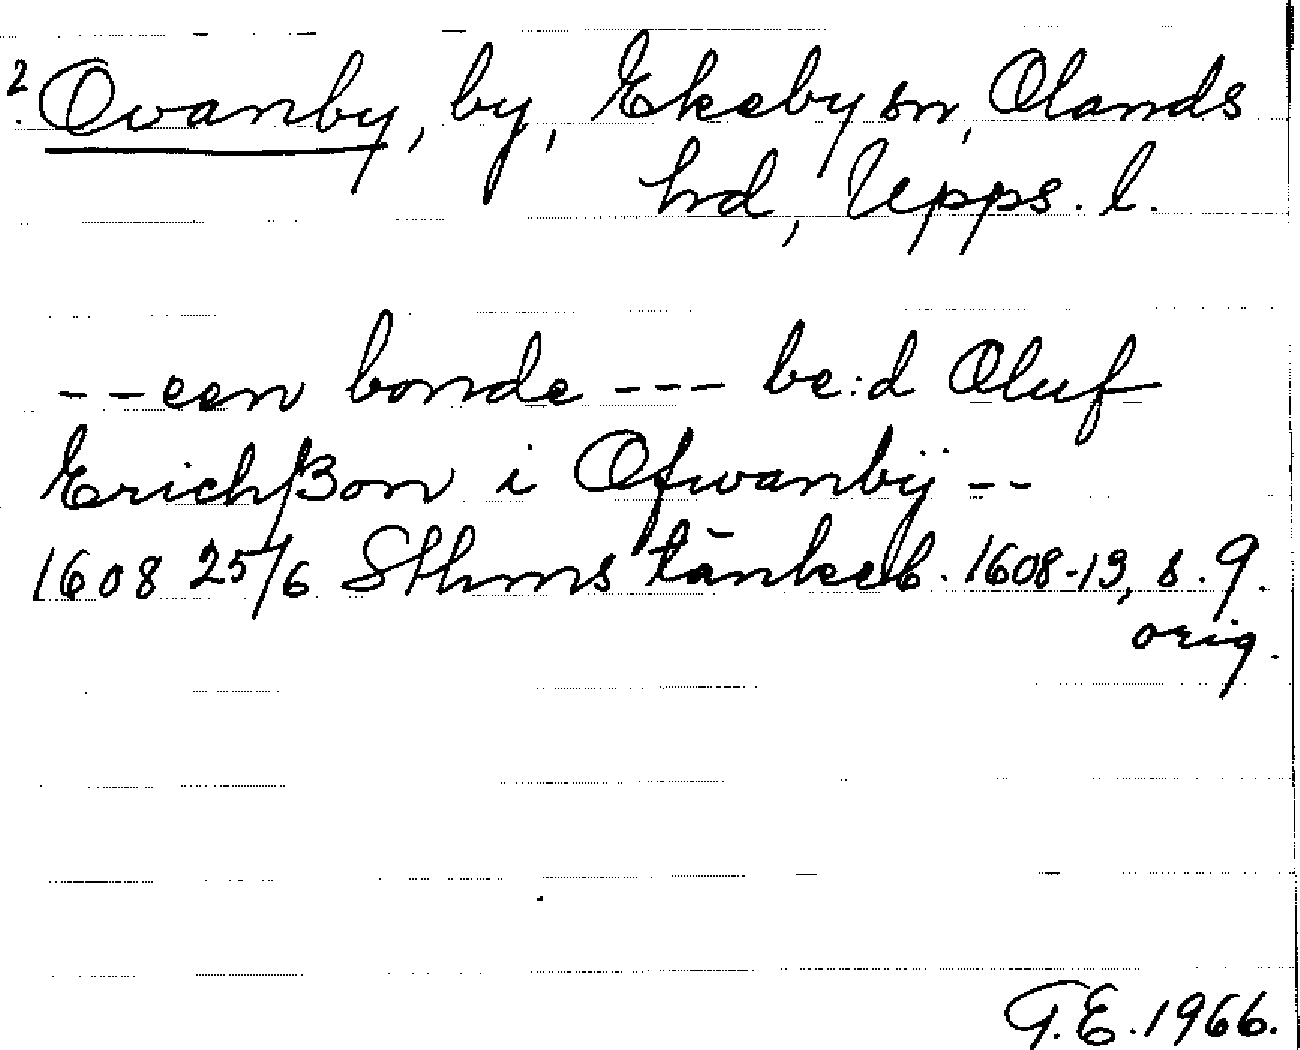 ? Ovanby, by, Ekeby sn, Olands
hd, Upps. l.
--een bonde --- be:d Oluf
Erichßon i Ofwanbÿ --
1608 25/6 Sthms tänkeb. 1608-13, s. 9.
orig.
G.E. 1966.